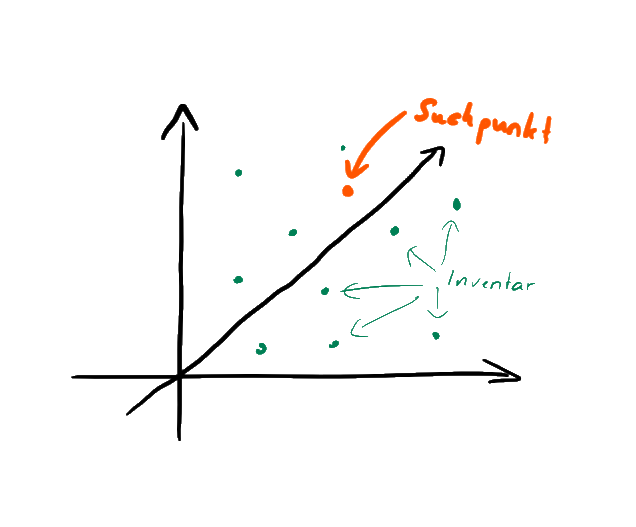 Suchpunkt
Inventar